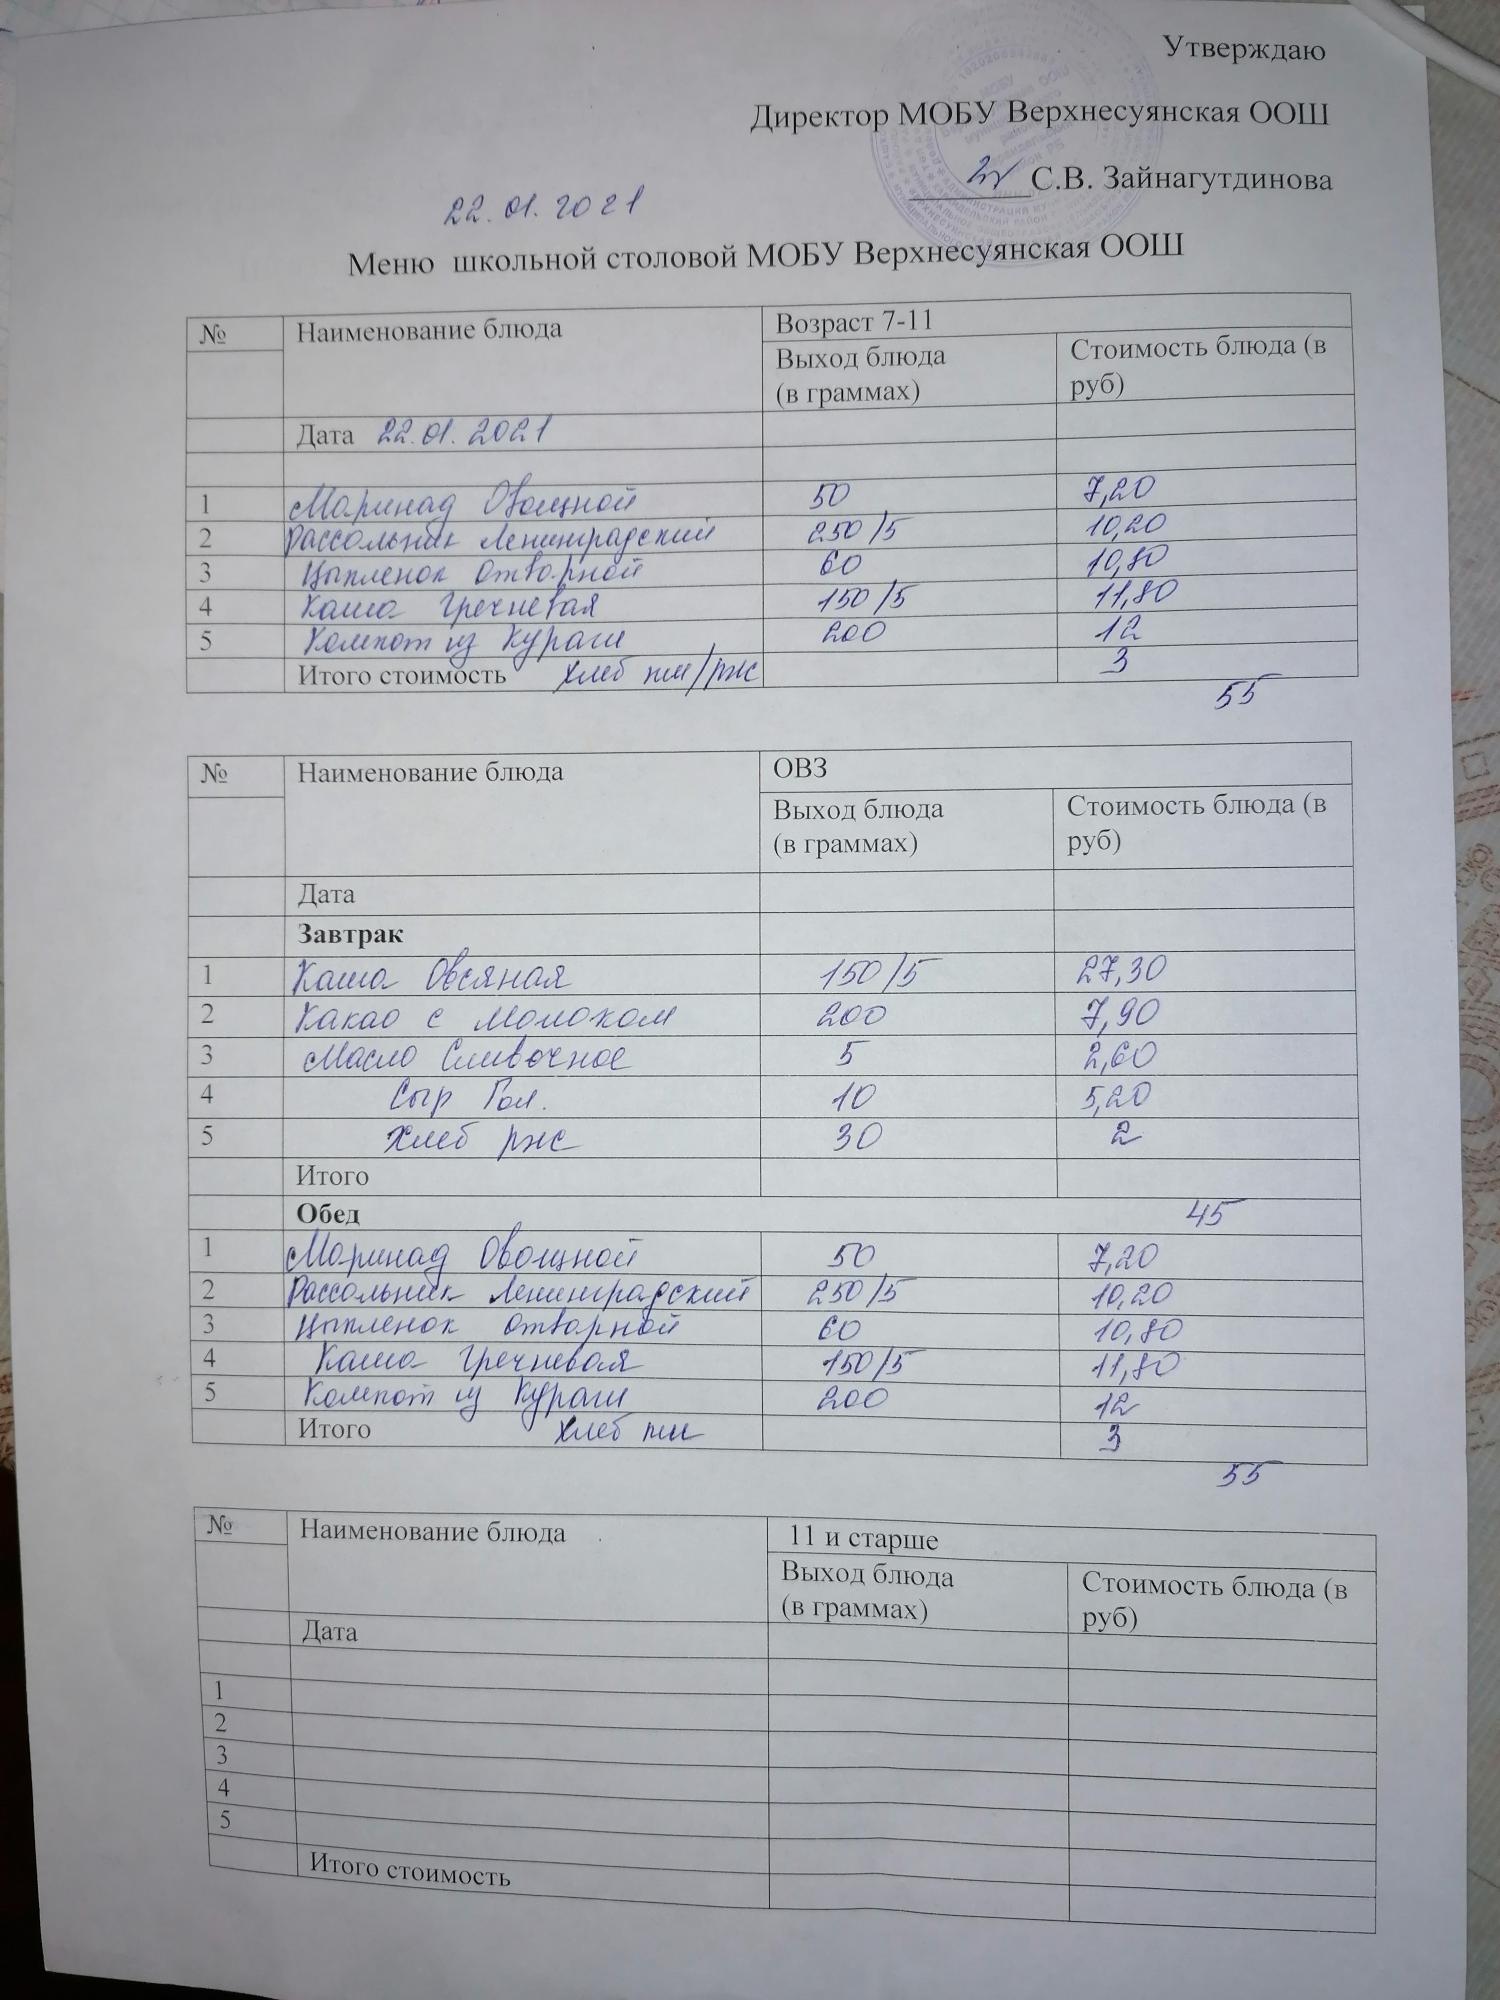 Утверждаю
Директор МОБУ Верхнесуянская ООШ
С.В. Зайнагутдинова
22.01.2021
Меню школьной столовой МОБУ Верхнесуянская ООШ
№ Наименование блюда Возраст 7-11
Выход блюда (в граммах) Стоимость блюда (в руб)
Дата 22.01.2021
1 Маринад Овощной 50 7,20
2 Рассольник Ленинградский 250/5 10,20
3 Цыпленок отворной 60 10,80
4 Каша Гречневая 150/5 11,80
5 Компот из Кураги 200 12
Итого стоимость хлеб пш/рж 3
55
№ Наименование блюда ОВЗ
Выход блюда (в граммах) Стоимость блюда (в руб)
Дата
Завтрак
1 Каша Овсяная 150/5 27,30
2 Какао с молоком 200 7,90
3 Масло Сливочное 5 2,60
4 Сыр Гол. 10 5,20
5 Хлеб рж 30 2
Итого
Обед 45
1 Маринад Овощной 50 7,20
2 Рассольник Ленинградский 250/5 10,20
3 Цыпленок отворной 60 10,80
4 Каша Гречневая 150/5 11,80
5 Компот из Кураги 200 12
Итого хлеб пш 3
55
№ Наименование блюда 11 и старше
Выход блюда (в граммах) Стоимость блюда (в руб)
Дата
1
2
3
4
5
Итого стоимость